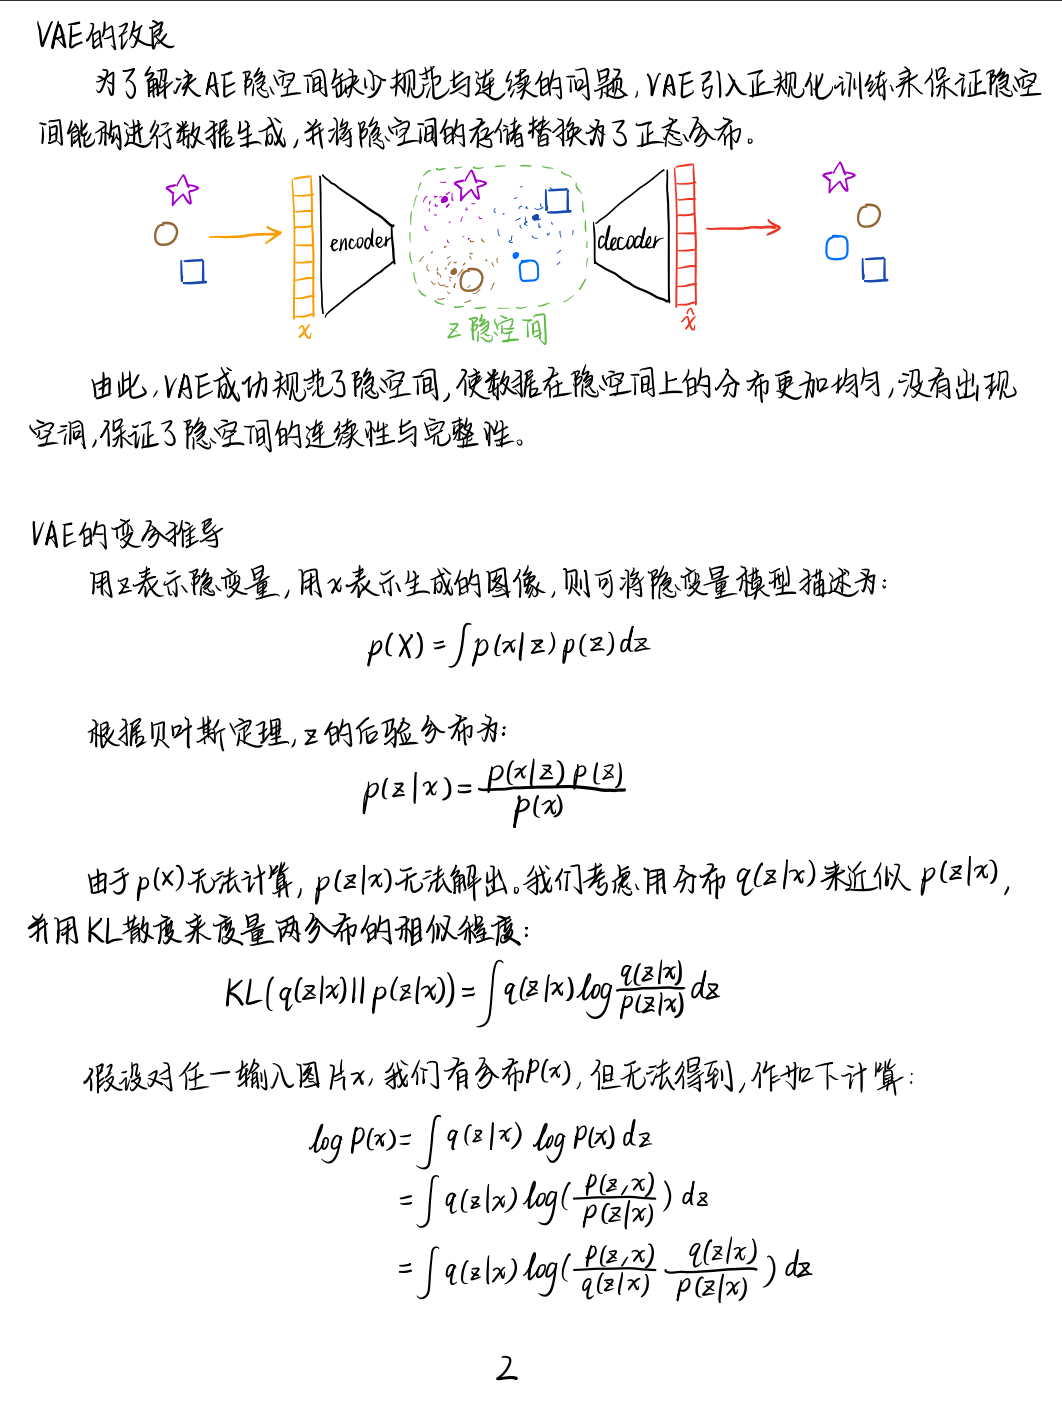 VAE的改良
为了解决AE隐空间缺少规范与连续的问题,VAE引入正规化训练来保证隐空
间能够进行数据生成,并将隐空间的存储替换为了正态分布。
encoder
decoder
x
z 隐空间
x̂
由此,VAE成功规范了隐空间,使数据在隐空间上的分布更加均匀,没有出现
空洞,保证了隐空间的连续性与完整性。
VAE的变分推导
用z表示隐变量,用x表示生成的图像,则可将隐变量模型描述为:
p(X) = ∫p(x|z)p(z)dz
根据贝叶斯定理,z的后验分布为:
p(z|x) = p(x|z)p(z) / p(x)
由于p(X)无法计算,p(z|x)无法解出。我们考虑用分布q(z|x)来近似p(z|x),
并用KL散度来度量两分布的相似程度:
KL(q(z|x)||p(z|x)) = ∫q(z|x)log q(z|x)/p(z|x) dz
假设对任一输入图片x,我们有分布P(x),但无法得到,作如下计算:
log P(x) = ∫q(z|x) log P(x) dz
= ∫q(z|x)log( P(z,x) / P(z|x) ) dz
= ∫q(z|x)log( P(z,x)/q(z|x) q(z|x)/P(z|x) ) dz
2